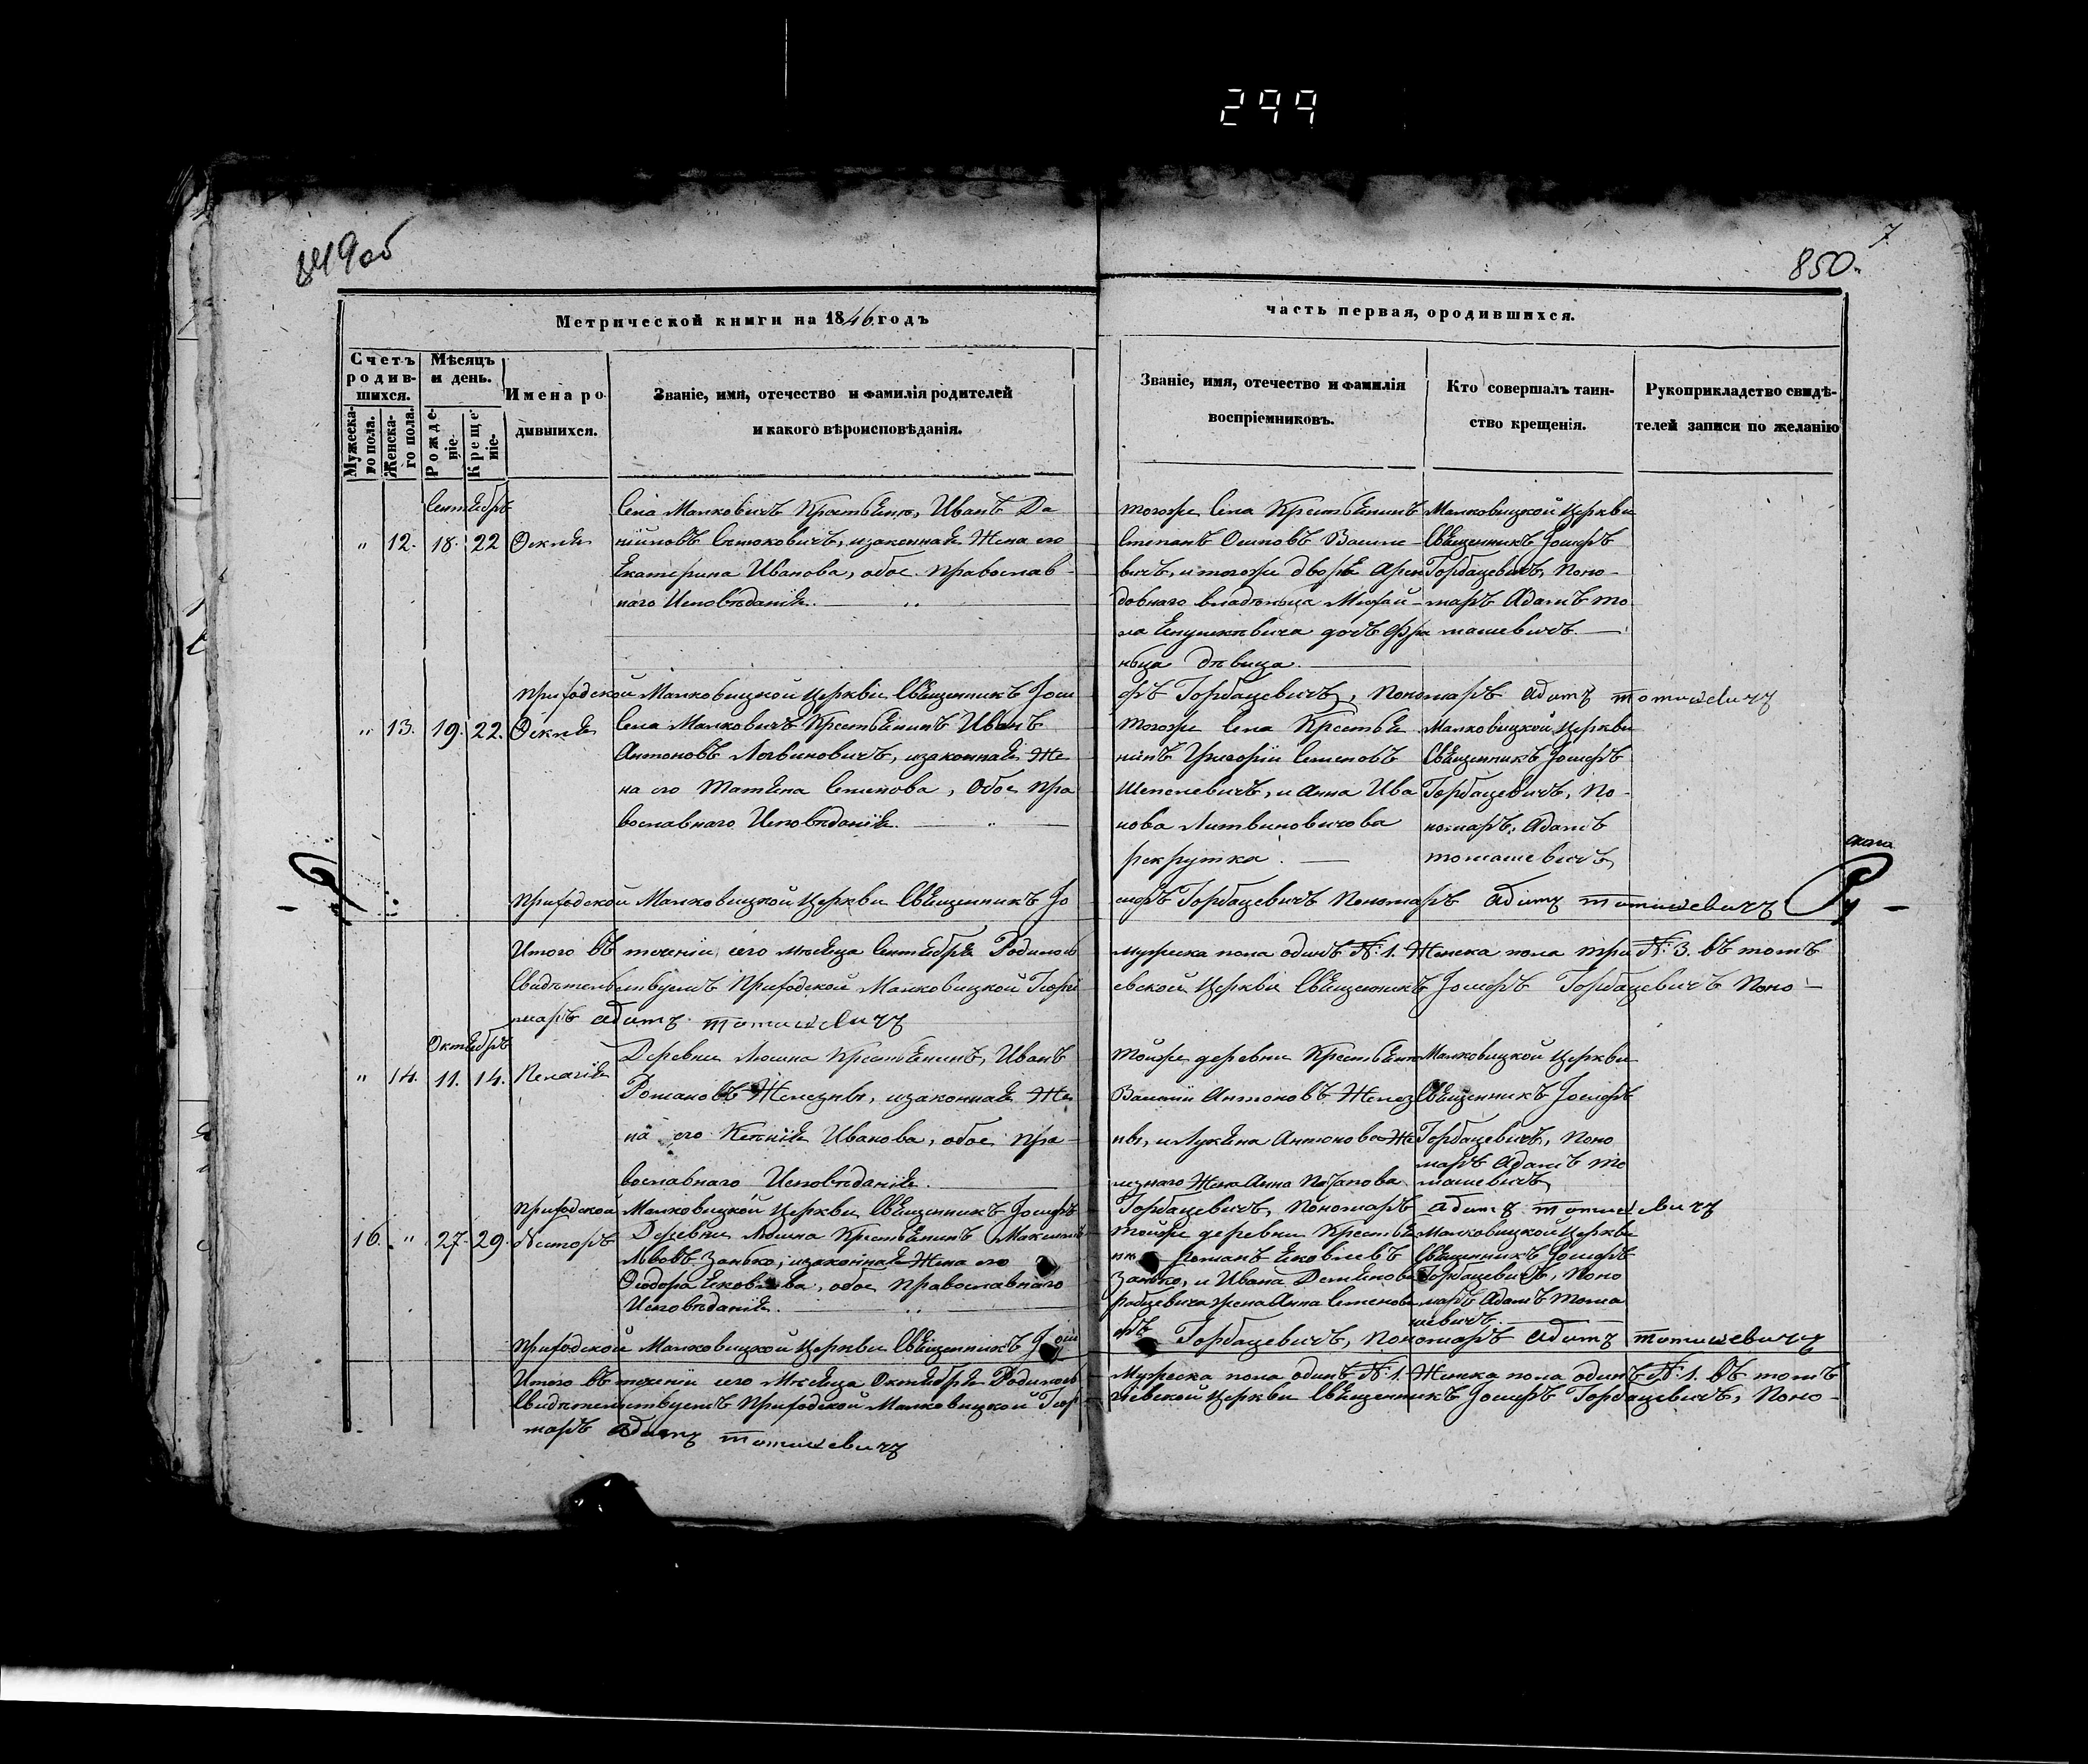 299
849об
850.
7
Метрической книги на 1846 годъ
часть первая, ородившихся.
Счетъ родив-шихся.
Мѣсяцъ и день.
Имена ро-
дившихся.
Мужеска-го пола.
Женска-го пола.
Рожде-ніе.
Креще-ніе.
Званіе, имя, отечество и фамилія родителей
и какого вѣроисповѣданія.
Званіе, имя, отечество и фамилія
воспріемниковъ.
Кто совершалъ таин-
ство крещенія.
Рукоприкладство свидѣ-
телей записи по желанію
Сентябрь
" 12. 18. 22 Фекля
Села Малковичъ Крестьянинъ, Иванъ Да
ниловъ, изаконная Жена его
Екатерина Иванова, обое Православ-
наго Исповѣданія.
тогоже Села Крестьянинъ
Степанъ Осиповъ Василе-
вичъ, и тогоже двора Арен
довнаго владѣльца Михай-
ла дочь Фра
нца дѣвица.
Малковицкой Церкви
Священникъ Іосифъ
Горбацевичъ, Поно-
марь Адамъ То
машевичъ.
Приходской Малковицкой Церкви Священникъ Іоси
фъ Горбацевичъ, Пономарь Адамъ Томашевичъ
" 13. 19. 22. Фекля
Села Малковичъ Крестьянинъ Иванъ
Антоновъ Литвиновичъ, изаконная Же
на его Татьяна Семенова, Обое Пра
вославнаго Исповѣданія.
Тогоже Села Крестья
нинъ Григорій Семеновъ
Шепелевичъ, и Анна Ива
нова Литвиновичова
рекрутка.
Малковицкой Церкви
Священникъ Іосифъ
Горбацевичъ, По-
номарь, Адамъ
Томашевичъ,
Приходской Малковицкой Церкви Священникъ Іо
сифъ Горбацевичъ Пономарь Адамъ Томашевичъ
Итого въ теченіи сего мѣсяца Сентября Родилось
мужеска пола одинъ №. 1. Женска пола три №. 3. въ томъ
Свидѣтельствуемъ Приходской Малковицкой Георгі
евской Церкви Священникъ Іосифъ Горбацевичъ Поно-
марь Адамъ Томашевичъ
Октябрь
" 14. 11. 14. Пелагія
Деревни Люшна Крестьянинъ, Иванъ
Романовъ Железны, изаконная Же
на его Ксенія Иванова, обое Пра-
вославнаго Исповѣданія.
Тойже деревни Крестьянинъ
Василій Антоновъ Желез
ны, и Лукьяна Антонова Же
лезнаго Жена Анна Потапова
Малковицкой Церкви
Священникъ Іосифъ
Горбацевичъ, Поно
марь Адамъ То
машевичъ,
Приходской Малковицкой Церкви Священникъ Іосифъ
Горбацевичъ, Пономарь Адамъ Томашевичъ
16. " 27. 29. Несторъ
Деревни Люшна Крестьянинъ Максимъ
Львовъ Занько, изаконная Жена его
Ѳеодора Яковлева, обое Православнаго
Исповѣданія.
Тойже деревни Крестья
нинъ Романъ Яковлевъ
Занько, и Ивана Демьянова
жена Анна Семенова
Малковицкой Церкви
Священникъ Іосифъ
Горбацевичъ, Поно
марь Адамъ Тома
шевичъ.
Приходской Малковицкой Церкви Священникъ Іоси
фъ Горбацевичъ, Пономарь Адамъ Томашевичъ
Итого въ теченіи сего Мѣсяца Октября Родилось
Мужеска пола одинъ №. 1. Женска пола одинъ №. 1. въ томъ
Свидѣтельствуемъ Приходской Малковицкой Геор-
гіевской Церкви Священникъ Іосифъ Горбацевичъ, Поно-
марь Адамъ Томашевичъ